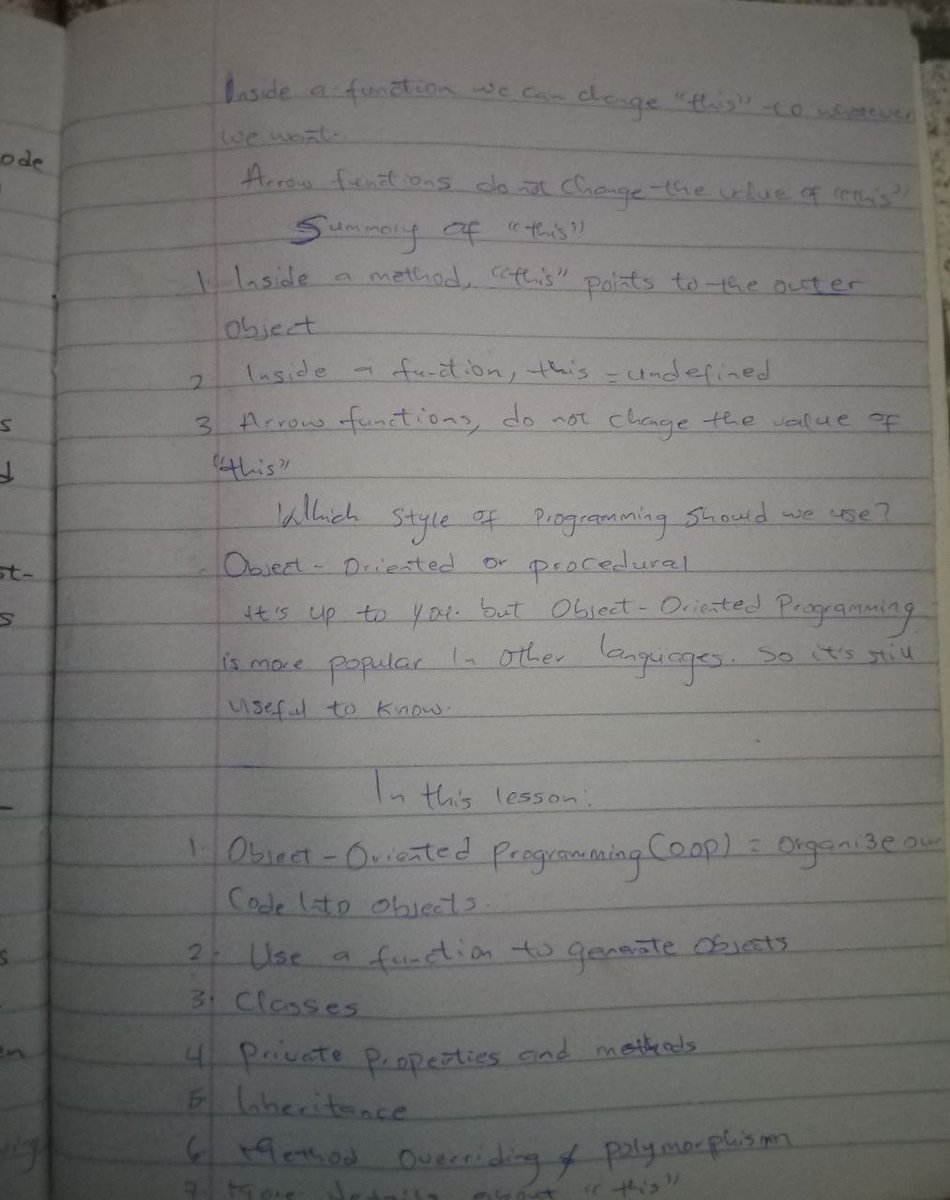 Inside a function we can change "this" to whatever
we want.
Arrow functions do not change the value of "this"
Summary of "this"
1. Inside a method, "this" points to the outer
Object
2 Inside a function, this = undefined
3 Arrow functions, do not change the value of
"this"
Which style of programming should we use?
Object-Oriented or procedural
It's up to you. but Object-Oriented Programming
is more popular in other languages. So it's still
useful to know.
In this lesson:
1. Object-Oriented Programming (OOP) = organize our
Code into objects.
2. Use a function to generate objects
3. Classes
4 Private Properties and methods
5 Inheritance
6 Method Overriding & polymorphism
7 More details about "this"
ode
s
d
st-
s
s
en